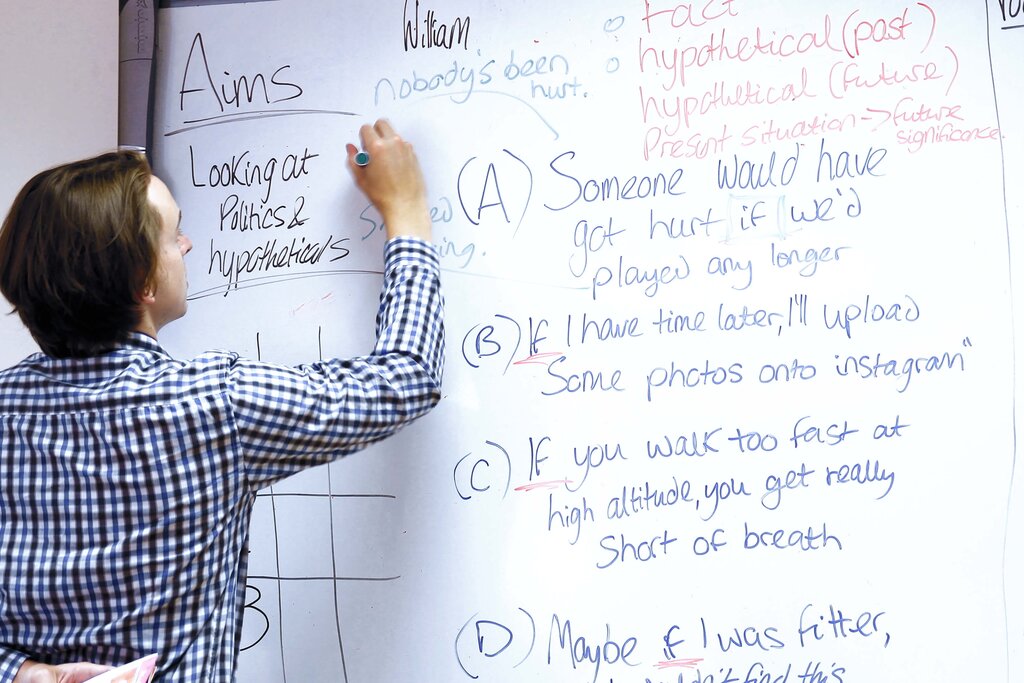 William
Aims
Looking at
Politics &
hypotheticals
nobody's been
hurt.
Fact
hypothetical (past)
hypothetical (future)
Present situation -> future
significance
(A) Someone would have
got hurt if we'd
played any longer
(B) If I have time later, I'll upload
Some photos onto instagram"
(C) If you walk too fast at
high altitude, you get really
Short of breath
(D) Maybe if I was fitter,
find this